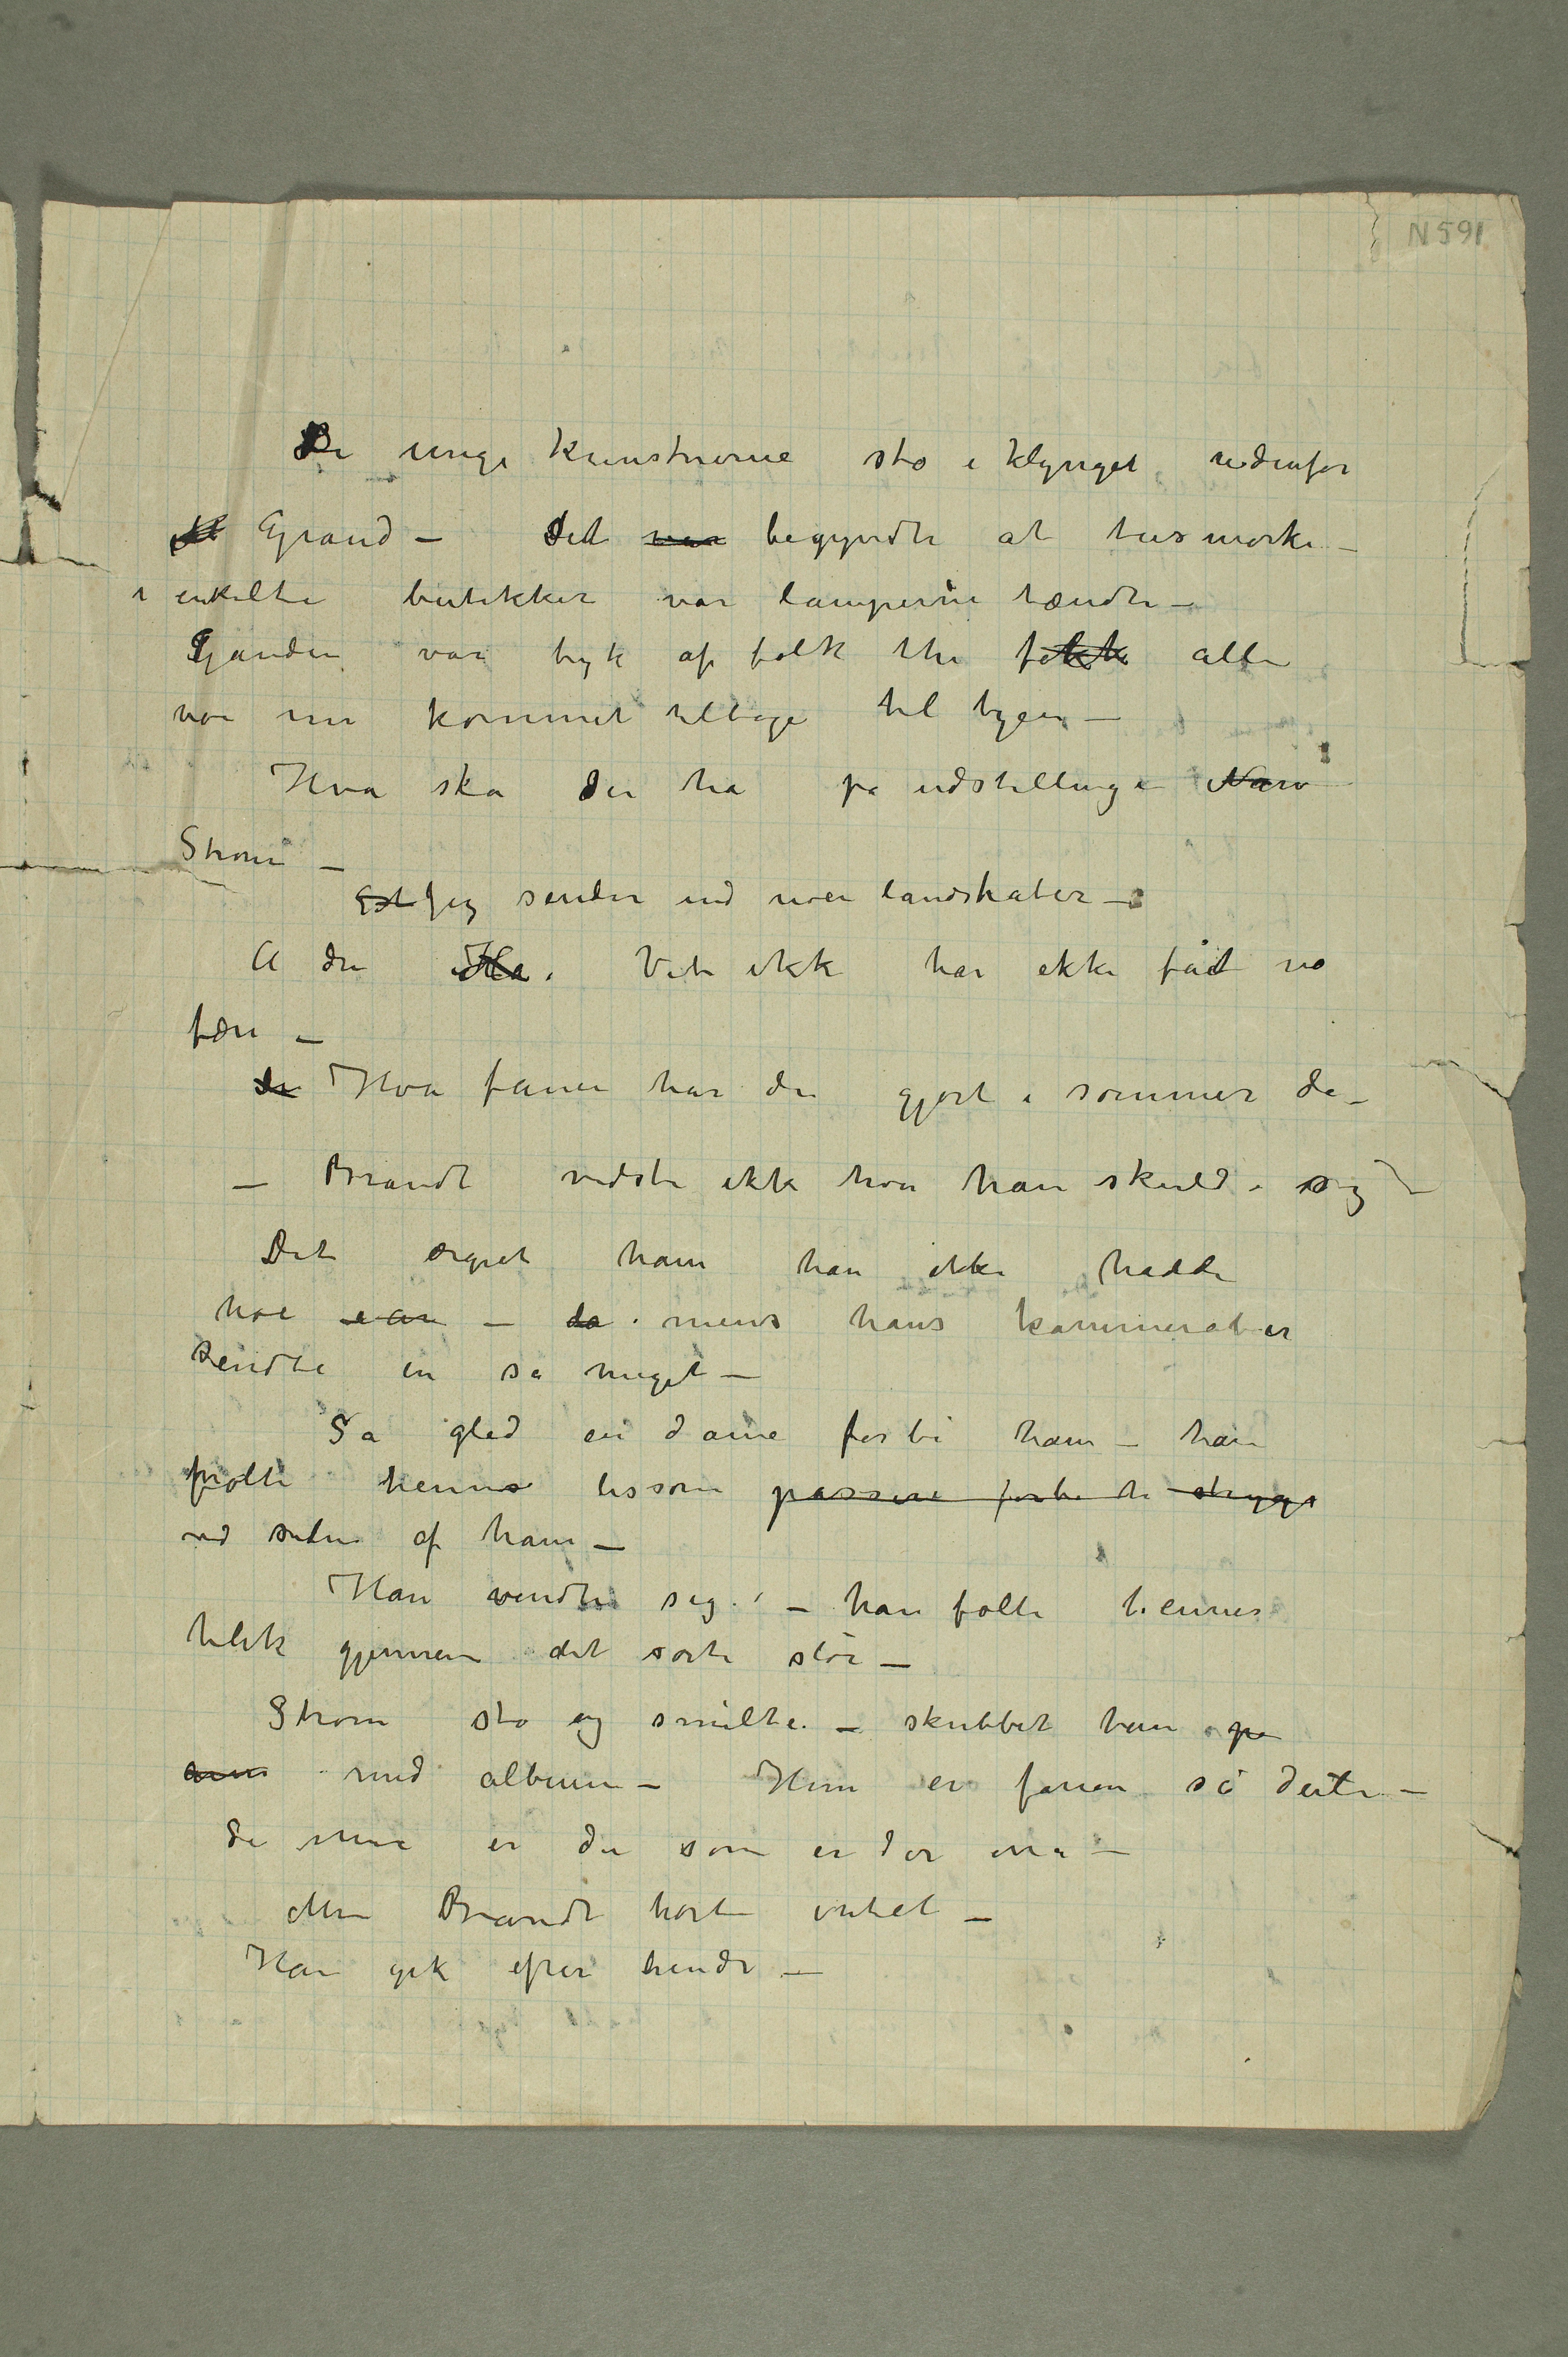 N 591
De unge kunstnerne sto i klynget udenfor
Grand – Det var begyndte at tusmørke –
i enkelte butikker var lamperne tændte –
Ganden var tyk af folk the folk alle
var nu kommet tilbage til byen –
Hva ska du ha på udstillingen Narv
Strøm –
Gst Jeg sender ind noen landskaber –
A du Ha. Vet ikke har ikke fåt no
færi –
du Hva fanen har du gjort i sommer da –
– Brandt vidste ikke hva han skulde sig –
Det ærgret ham han ikke hadde
noe ear – da mens hans kammerater
sendte in så meget –
Så gled en dame forbi ham – han
følte hennes lissom passere forbi he stryge
ved siden af ham –
Han vendte sig – han følte hennes
blik gjennem det sorte slør –
Strøm sto og smilte – skubbet ham på
arm med albuen – Hun er fanen så deilei –
de mure er du som er der nva –
Men Brandt hørte intet –
Han gik efter hende –